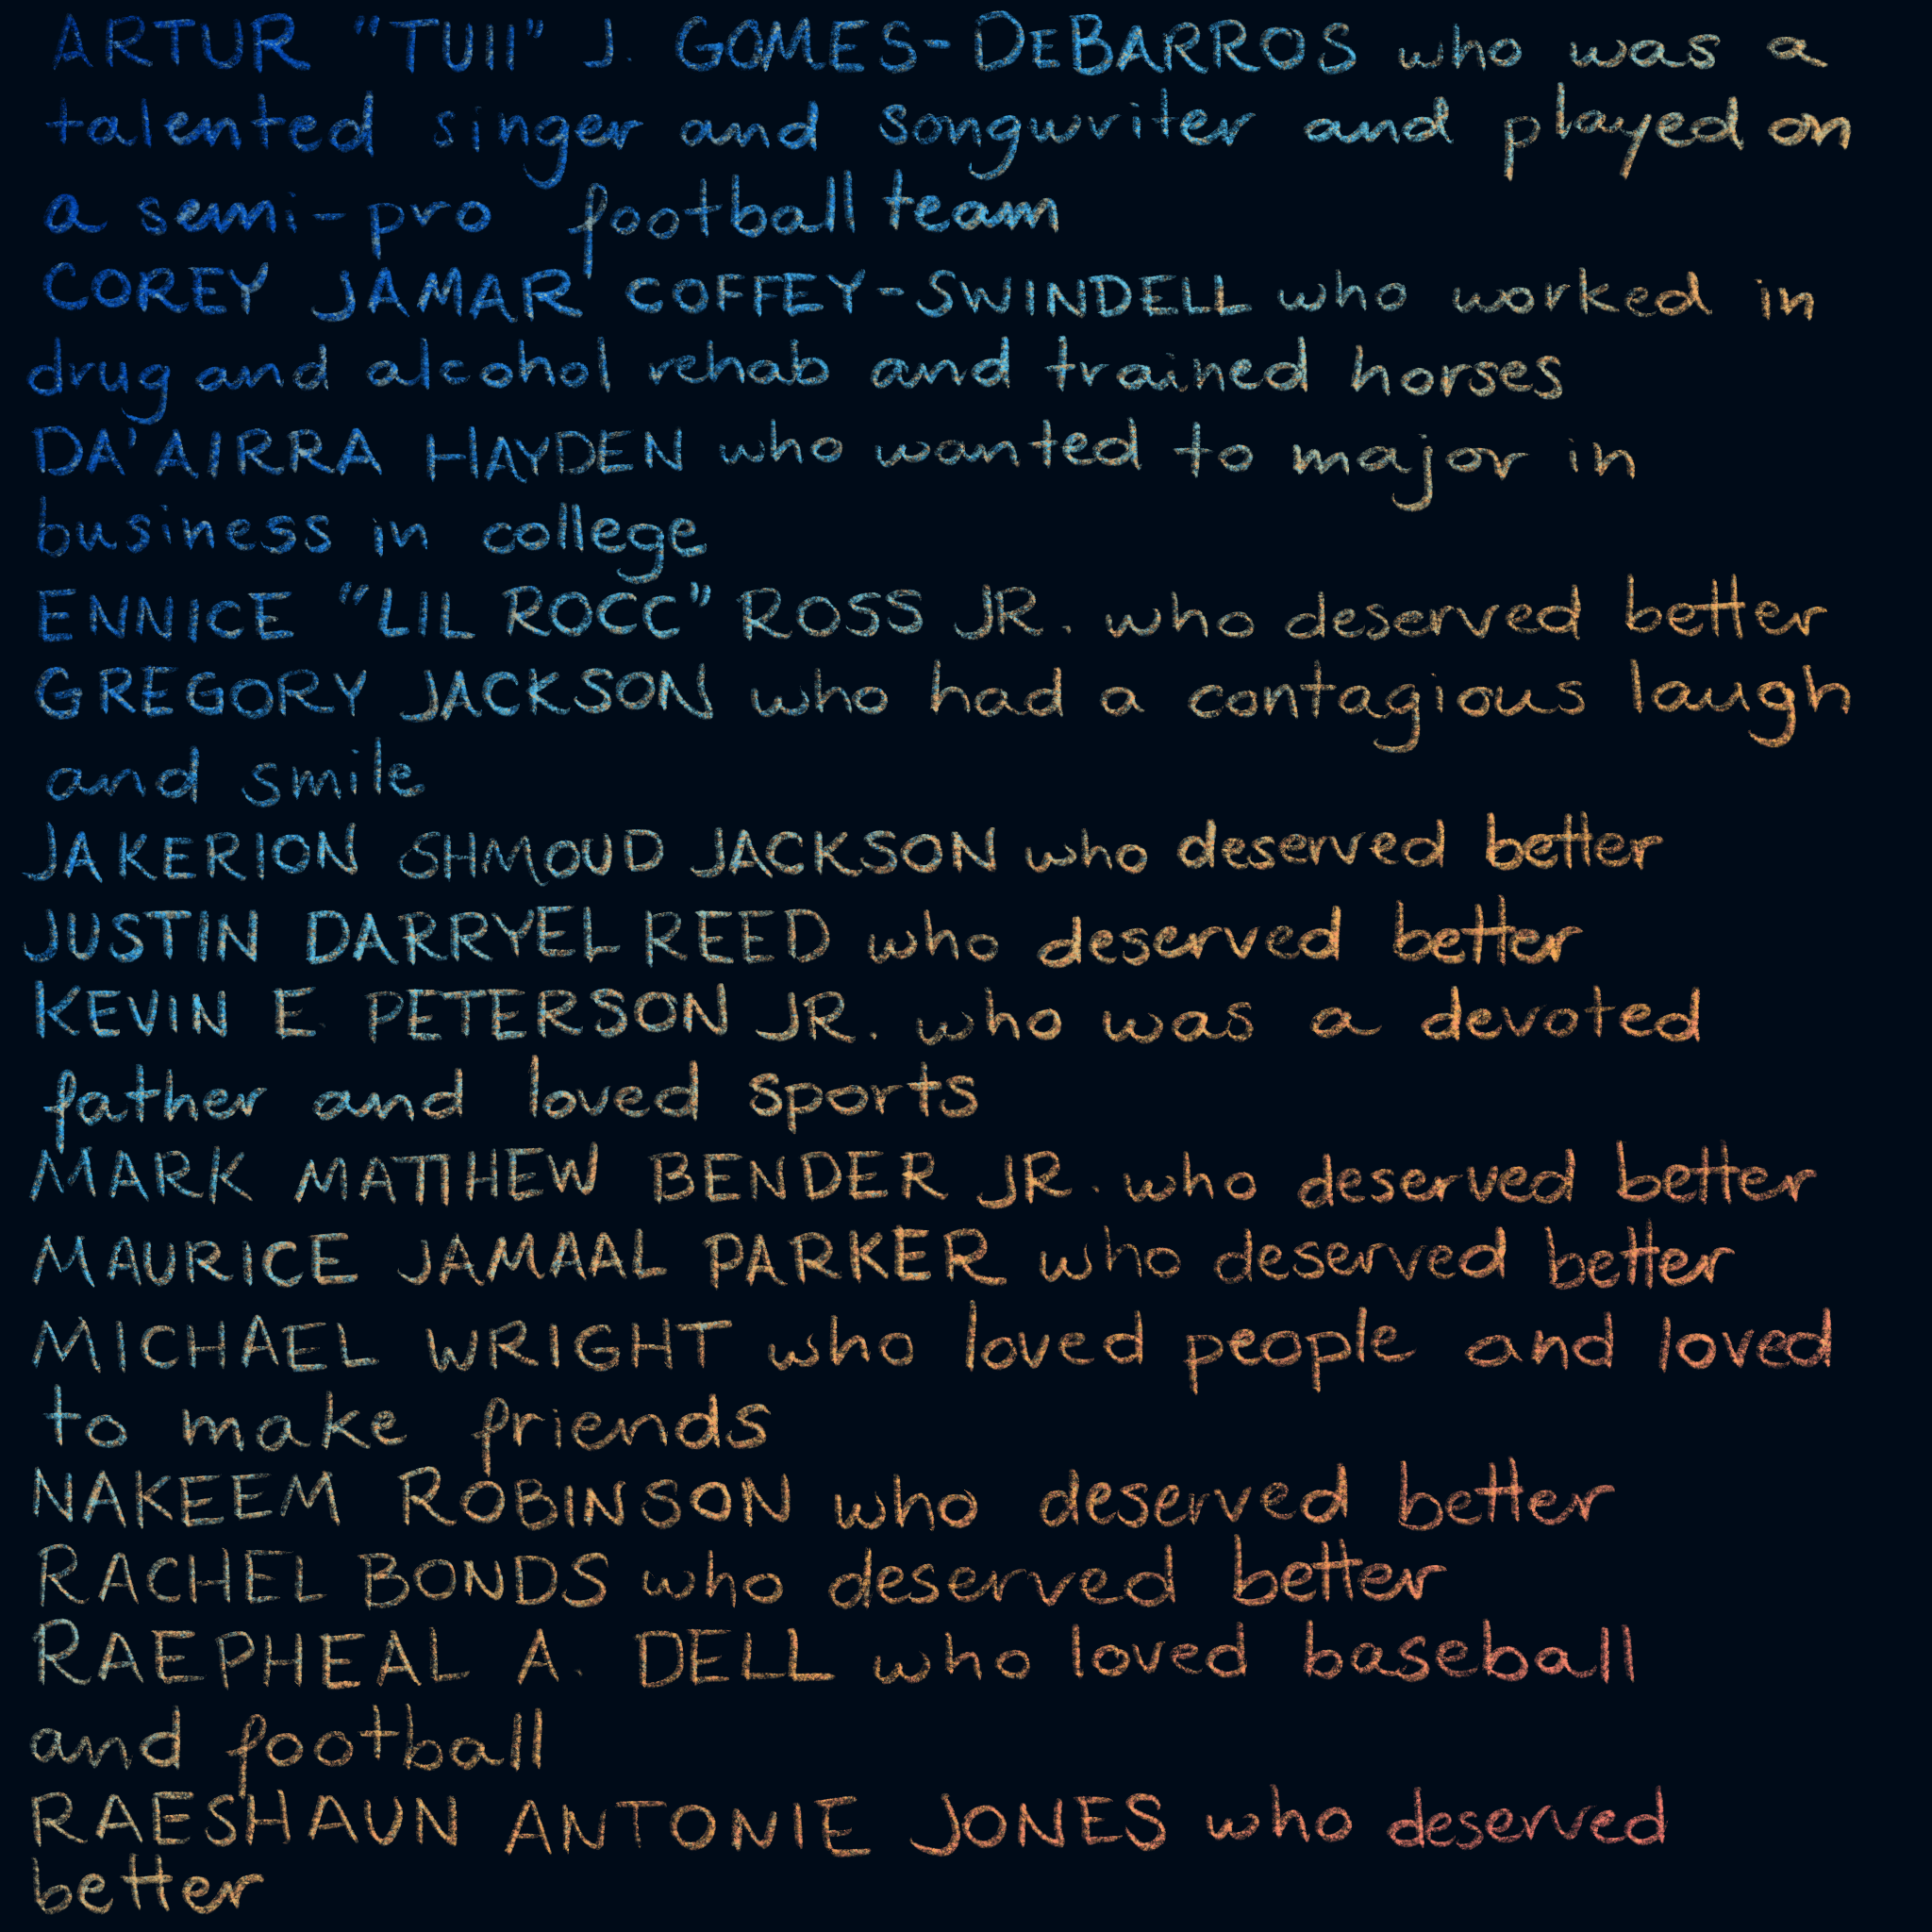 ARTUR "TUII" J. GOMES-DEBARROS who was a
talented singer and songwriter and played on
a semi-pro football team
COREY JAMAR COFFEY-SWINDELL who worked in
drug and alcohol rehab and trained horses
DA'AIRRA HAYDEN who wanted to major in
business in college
ENNICE "LIL ROCC" ROSS JR. who deserved better
GREGORY JACKSON who had a contagious laugh
and smile
JAKERION SHMOUD JACKSON who deserved better
JUSTIN DARRYEL REED who deserved better
KEVIN E. PETERSON JR. who was a devoted
father and loved sports
MARK MATTHEW BENDER JR. who deserved better
MAURICE JAMAAL PARKER who deserved better
MICHAEL WRIGHT who loved people and loved
to make friends
NAKEEM ROBINSON who deserved better
RACHEL BONDS who deserved better
RAEPHEAL A. DELL who loved baseball
and football
RAESHAUN ANTONIE JONES who deserved
better